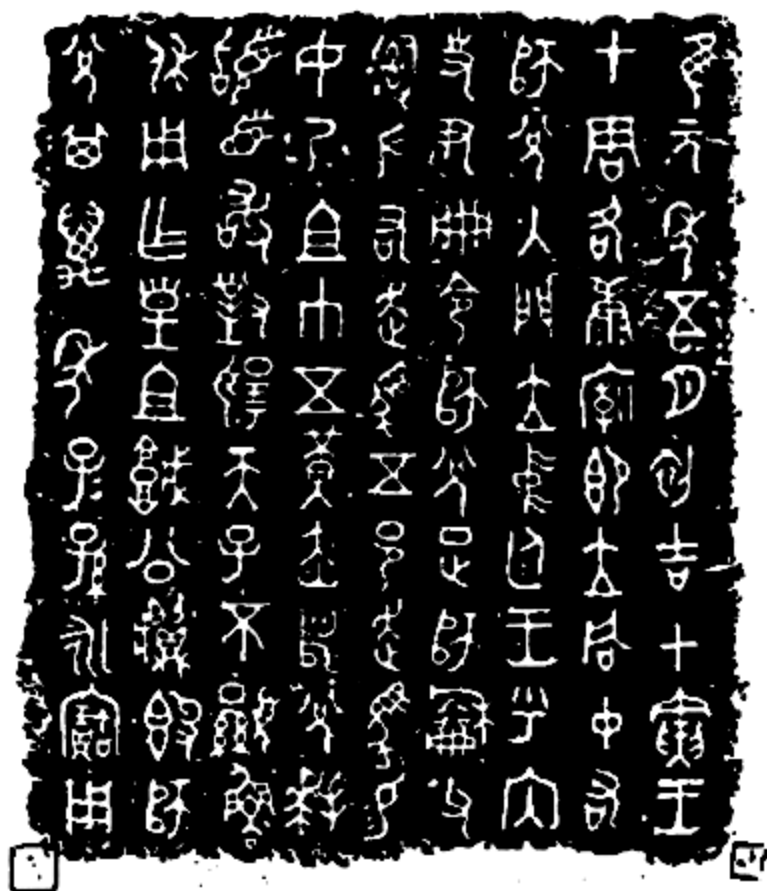 隹元年五月初吉甲寅王
才周各康廟即立同中右
師兌入門立中廷王乎內
史尹冊令師兌疋師龢父
司左右走馬五邑走馬易
女乃且巾五黃赤舄兌拜
稽首敢對揚天子不顯魯
休用乍皇且城公䵼簋師
兌其萬年子=孫=永寶用